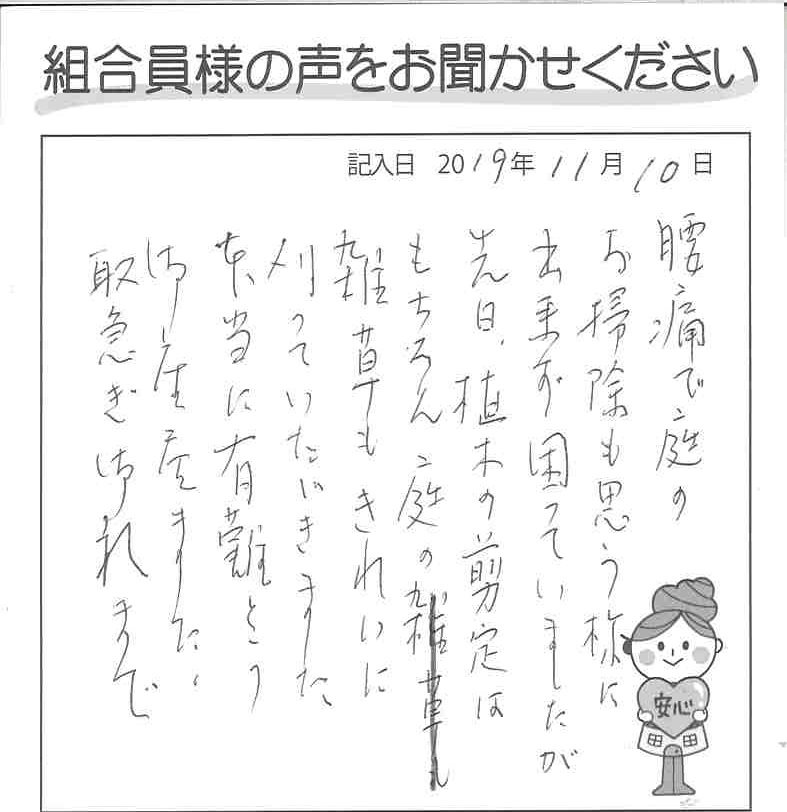 組合員様の声をお聞かせください
記入日 2019年11月10日
腰痛で庭の
お掃除も思う様に
出来ず困っていましたが
先日、植木の剪定は
もちろん庭の雑草も
雑草もきれいに
刈っていただきました
本当に有難とう
御座居ました。
取急ぎ御礼まで
安心